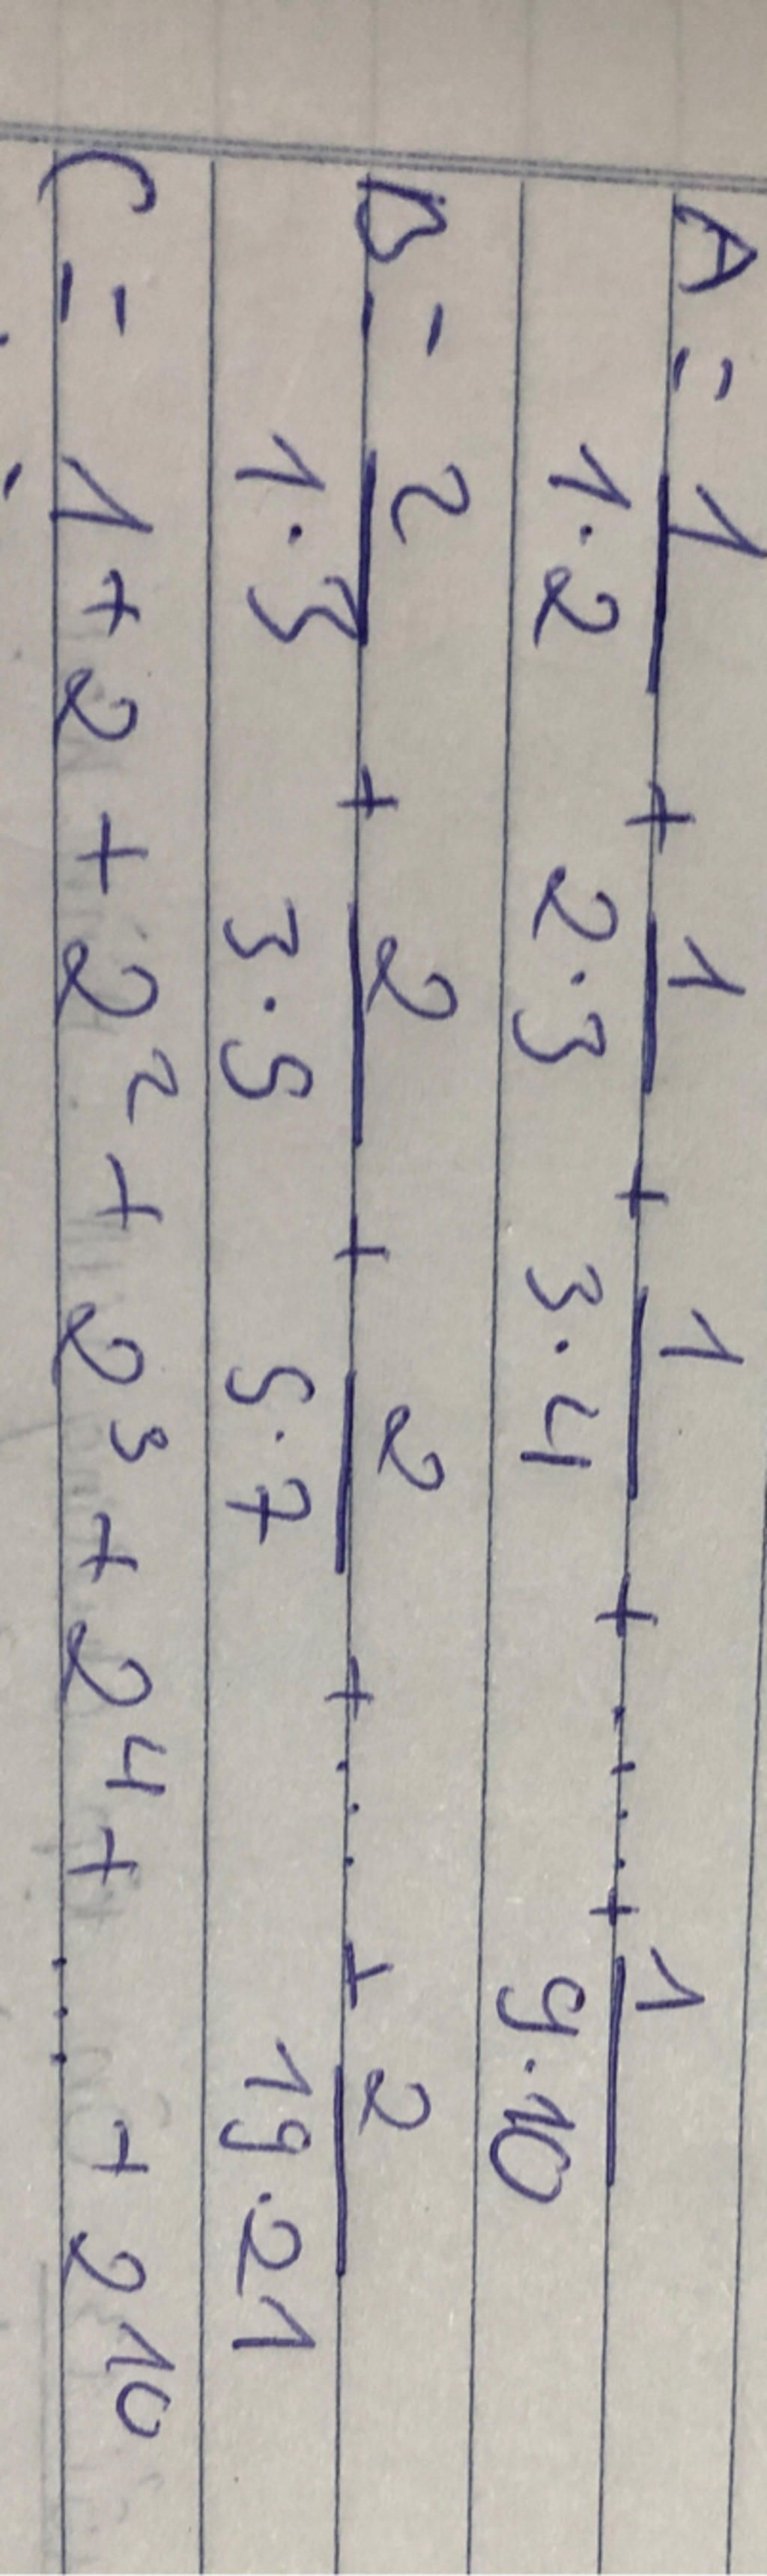 A = 1/(1·2) + 1/(2·3) + 1/(3·4) + .... + 1/(9·10)
B = 2/(1·3) + 2/(3·5) + 2/(5·7) + .... + 2/(19·21)
C = 1 + 2 + 2² + 2³ + 2⁴ + ... + 2¹⁰